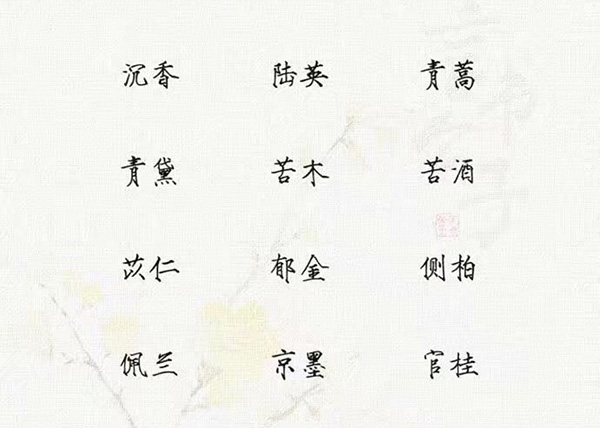 沉香 陆英 青蒿
青黛 苦木 苦酒
苡仁 郁金 侧柏
佩兰 京墨 官桂